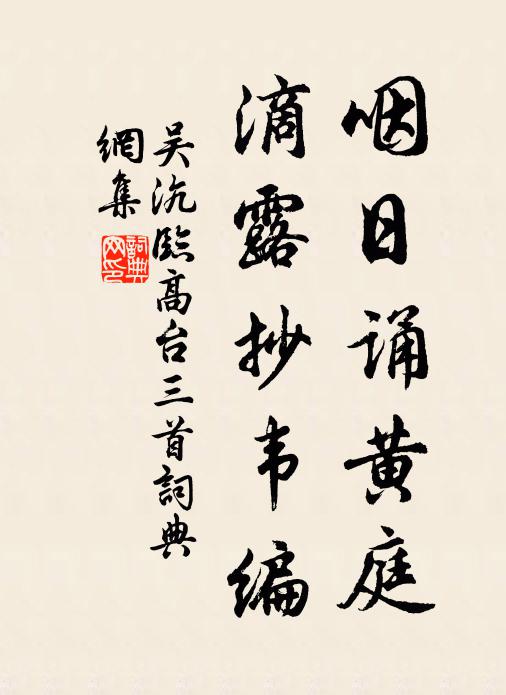 咽日诵黄庭
滴露抄韦编
吴沆临高台三首詞典
網集
詞典
网印